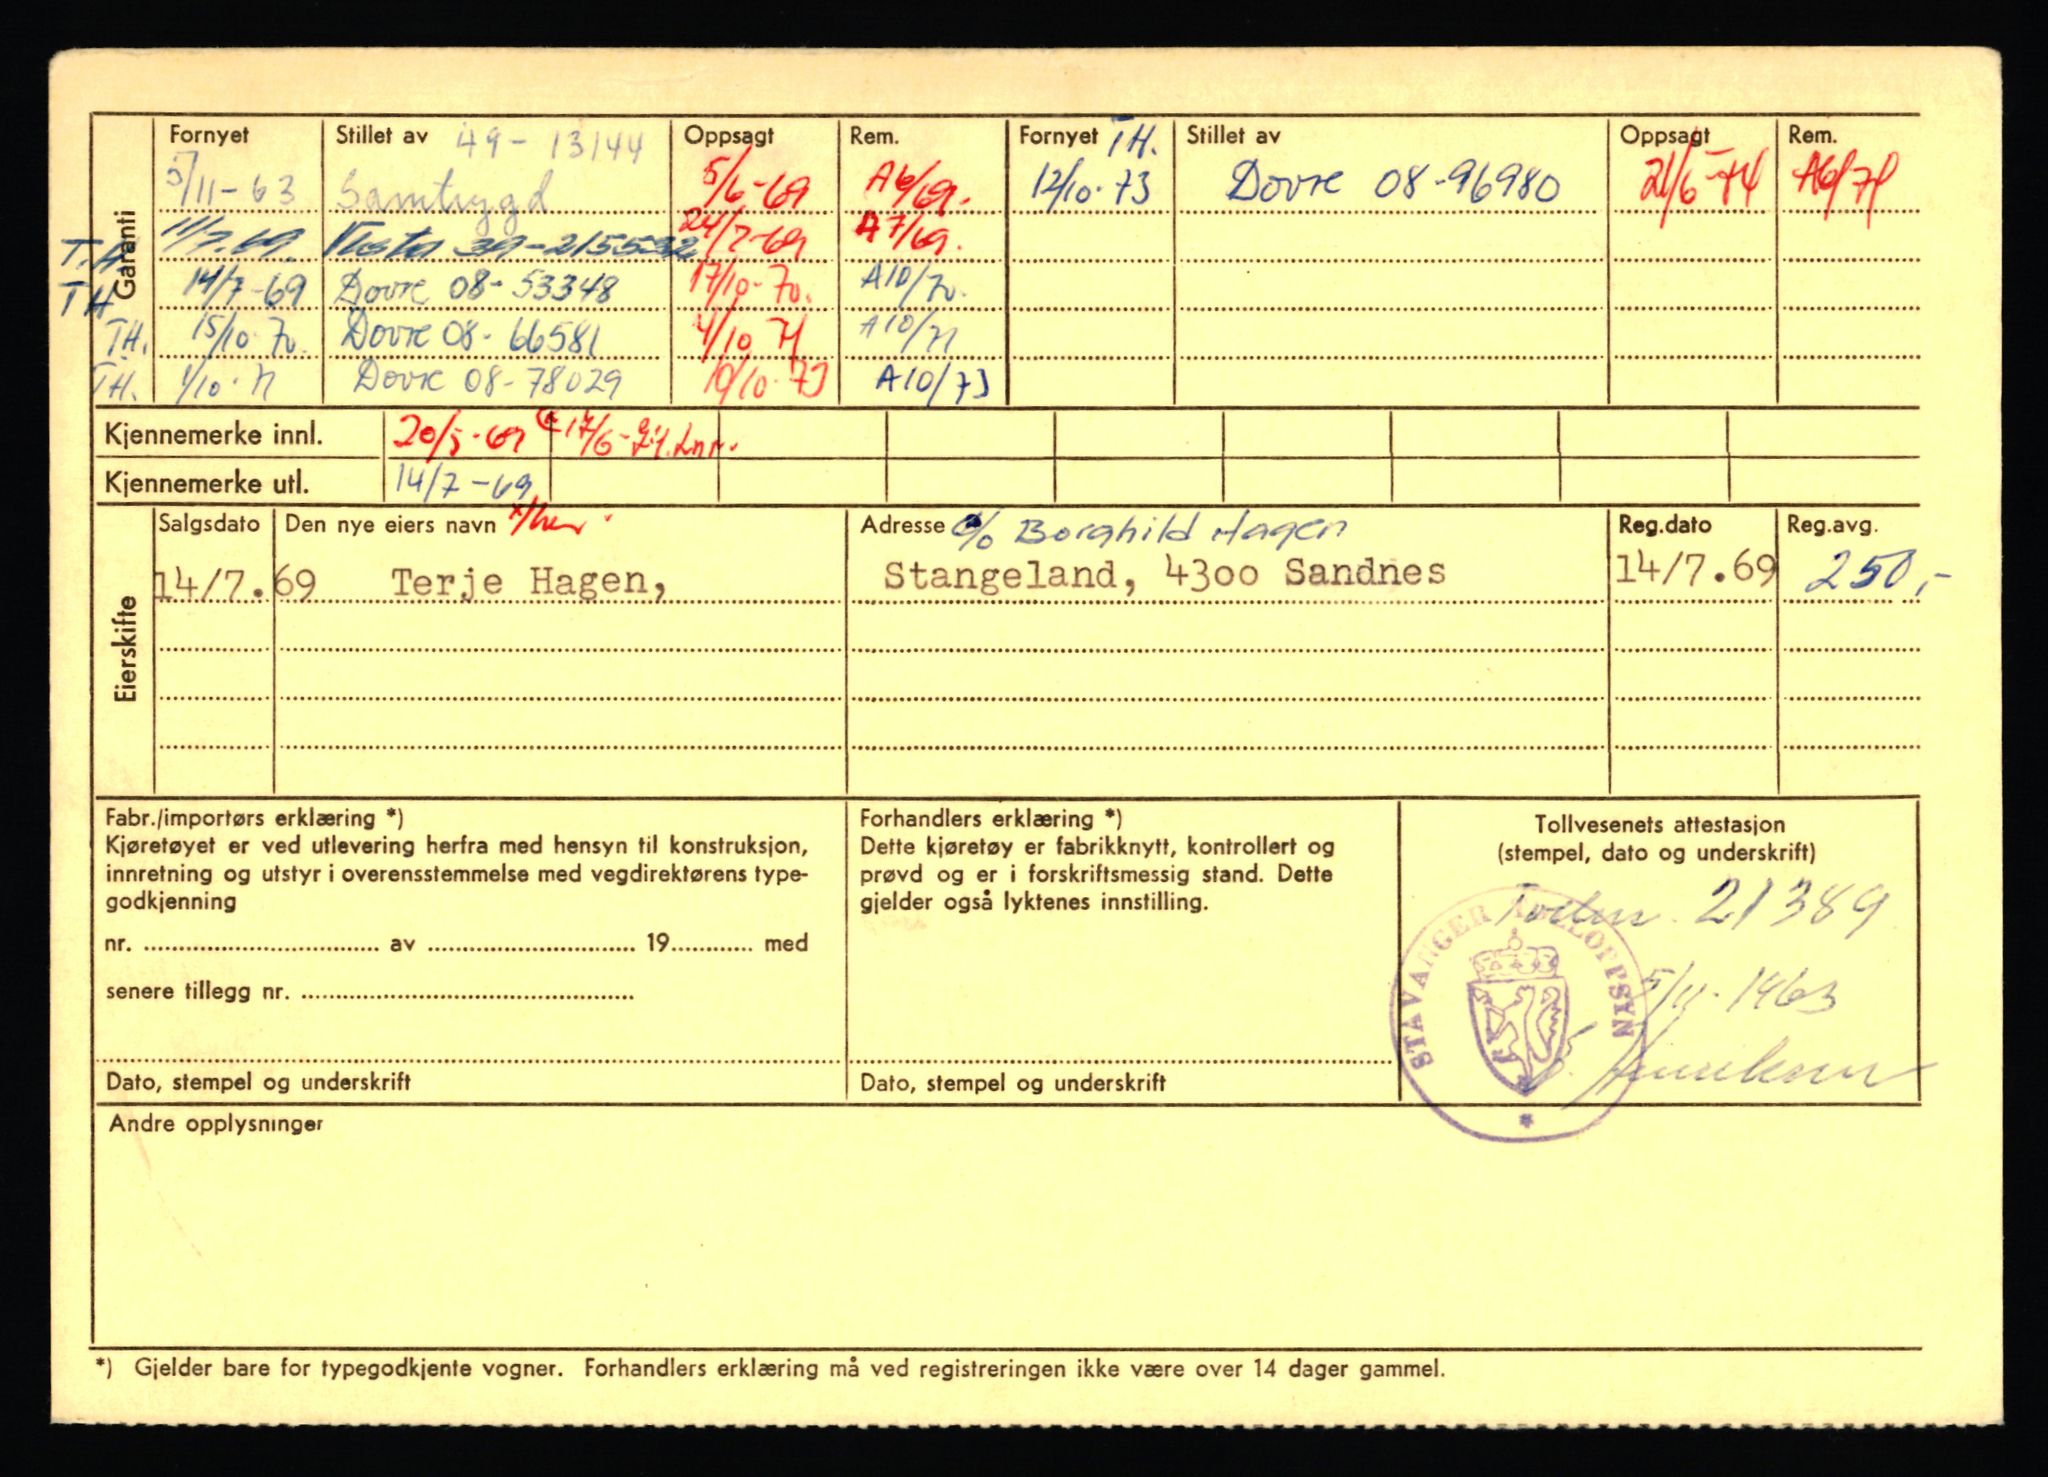 Garanti
Fornyet Stillet av 49 - 13144 Oppsagt Rem. Fornyet TH. Stillet av Oppsagt Rem.
5/11-63 Samtrygd 5/6-69 A6/69. 12/10-73 Dovre 08-96980 21/6-74 A6/74
T.H. 11/7.69. Vesta 39-215532 24/7-69 A7/69.
TH 14/7-69 Dovre 08-53348 17/10-70. A10/70.
TH. 15/10-70. Dovre 08-66581 4/10-71 A10/71
TH. 1/10-71 Dovre 08-78029 10/10-73 A10/73
Kjennemerke innl. 20/5-69 17/6-74.
Kjennemerke utl. 14/7-69
Eierskifte
Salgsdato Den nye eiers navn Adresse c/o Borghild Hagen Reg.dato Reg.avg.
14/7.69 Terje Hagen, Stangeland, 4300 Sandnes 14/7.69 250,-
Fabr./importørs erklæring *)
Kjøretøyet er ved utlevering herfra med hensyn til konstruksjon,
innretning og utstyr i overensstemmelse med vegdirektørens type-
godkjenning
nr. av 19 med
senere tillegg nr.
Dato, stempel og underskrift
Forhandlers erklæring *)
Dette kjøretøy er fabrikknytt, kontrollert og
prøvd og er i forskriftsmessig stand. Dette
gjelder også lyktenes innstilling.
Dato, stempel og underskrift
Tollvesenets attestasjon
(stempel, dato og underskrift)
21389
5/11-1963
STAVANGER
Andre opplysninger
*) Gjelder bare for typegodkjente vogner. Forhandlers erklæring må ved registreringen ikke være over 14 dager gammel.